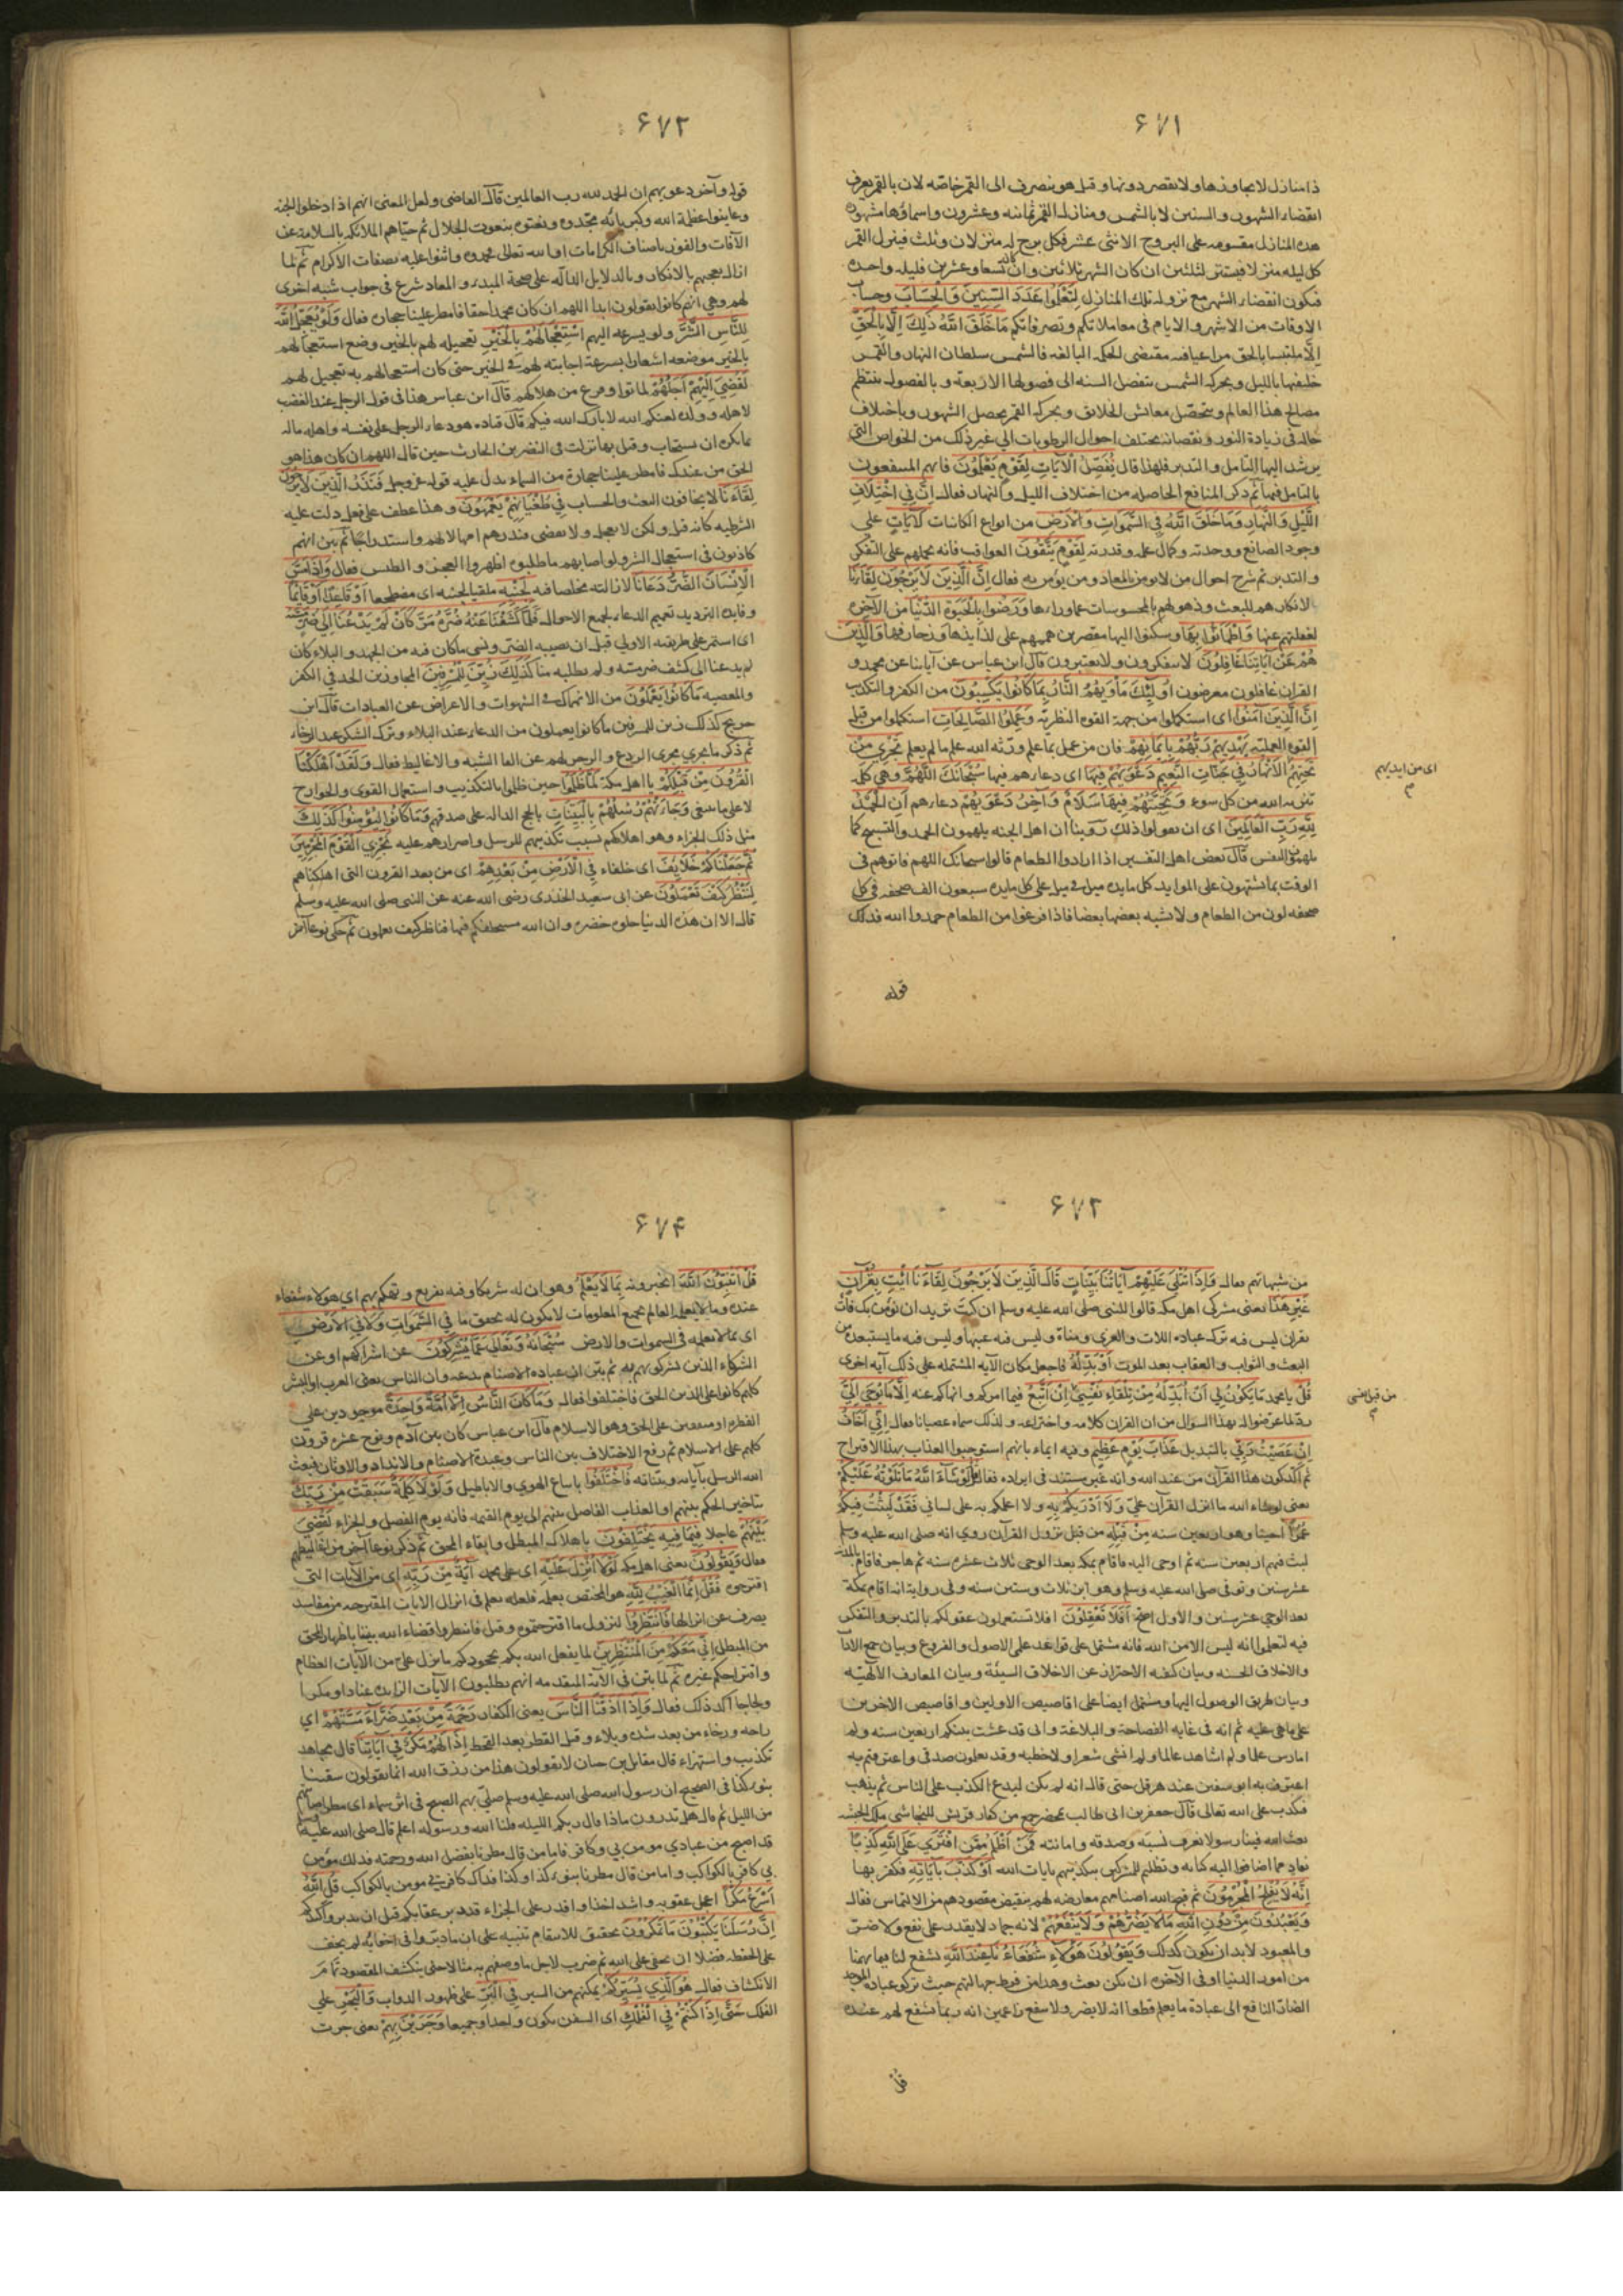 ٦٧١
ذا منازل لا يجاوزها ولا يقصر دونها وقيل هو ينصرف الى القمر خاصّه لان بالقمر يعرف
انقضاء الشهور والسنين لا بالشمس ومنازل القمر ثمانيه وعشرون واسماؤها مشهوره
هذه المنازل مقسومه على البروج الاثنى عشر فكل برج له منزلان وثلث فينزل القمر
كل ليله منزلا فيستتر ليلتين ان كان الشهر ثلاثين وان كان تسعا وعشرين فليله واحده
فيكون انقضاء الشهر مع نزوله تلك المنازل لِتَعْلَمُوا عَدَدَ السِّنِينَ وَالْحِسَابَ وحساب
الاوقات من الاشهر والايام فى معاملاتكم وتصرفاتكم مَا خَلَقَ اللَّهُ ذَلِكَ إِلَّا بِالْحَقِّ
الّا ملتبسا بالحق مراعيا فيه مقتضى الحكمه البالغه فالشمس سلطان النهار والقمر
خليفتها بالليل وبحركه الشمس تنفصل السنه الى فصولها الاربعة وبالفصول ينتظم
مصالح هذا العالم ويتحصّل معائش الخلائق وبحركه القمر يحصل الشهور وباختلاف
حاله فى زيادة النور ونقصانه يختلف احوال الرطوبات الى غير ذلك من الخواص التى
يرشد اليها التامل والتدبر فلهذا قال نُفَصِّلُ الْآيَاتِ لِقَوْمٍ يَعْلَمُونَ فانهم المنتفعون
بالتامل فيها ثم ذكر المنافع الحاصله من اختلاف الليل والنهار فقال إِنَّ فِي اخْتِلَافِ
اللَّيْلِ وَالنَّهَارِ وَمَا خَلَقَ اللَّهُ فِي السَّمَوَاتِ وَالْأَرْضِ من انواع الكائنات لَآيَاتٍ على
وجود الصانع ووحدته وكمال علمه وقدرته لِقَوْمٍ يَتَّقُونَ العواقب فانه يحملهم على التفكر
والتدبر ثم شرح احوال من لا يومن بالمعاد ومن يؤمن به فقال إِنَّ الَّذِينَ لَا يَرْجُونَ لِقَاءَنَا
لانكارهم للبعث وذهولهم بالمحسوسات عما وراءها وَرَضُوا بِالْحَيَوةِ الدُّنْيَا من الآخره
لغفلتهم عنها وَاطْمَأَنُّوا بِهَا وسكنوا اليها مقصرين هممهم على لذايذها وزخارفها وَالَّذِينَ
هُمْ عَنْ آيَاتِنَا غَافِلُونَ لا يتفكرون ولا يعتبرون قال ابن عباس عن آياتنا عن محمد و
القران غافلون معرضون أُولَئِكَ مَأْوَيهُمُ النَّارُ بِمَا كَانُوا يَكْسِبُونَ من الكفر والتكذيب
إِنَّ الَّذِينَ آمَنُوا اى استكملوا من جهة القوه النظريّه وَعَمِلُوا الصَّالِحَاتِ استكملوا من قبل
القوه العمليّه يَهْدِيهِمْ رَبُّهُمْ بِإِيمَانِهِمْ فان من عمل بما علم ورّثه الله علم ما لم يعلم تَجْرِي مِنْ
تَحْتِهِمُ الْأَنْهَارُ فِي جَنَّاتِ النَّعِيمِ دَعْوَيهُمْ فِيهَا اى دعاءهم فيها سُبْحَانَكَ اللَّهُمَّ وهى كلمه
تنزيه الله من كل سوء وَتَحِيَّتُهُمْ فِيهَا سَلَامٌ وَآخِرُ دَعْوَيهُمْ دعاءهم أَنِ الْحَمْدُ
لِلَّهِ رَبِّ الْعَالَمِينَ اى ان يقولوا ذلك روينا ان اهل الجنه يلهمون الحمد والتسبيح كما
يلهمون النفس قال بعض اهل التفسير اذا ارادوا الطعام قالوا سبحانك اللهم فاتوهم فى
الوقت بما يشتهون على الموايد كل مايده ميل فى ميل على كل مايده سبعون الف صحفه فى كل
صحفه لون من الطعام ولا يشبه بعضها بعضا فاذا فرغوا من الطعام حمدوا الله فذلك
اى من ايديهم
قوله
٦٧٢
قوله وآخر دعويهم ان الحمد لله رب العالمين قال القاضى ولعل المعنى انهم اذا دخلوا الجنه
وعاينوا عظمة الله وكبريائه مجّدوه ونعتوه بنعوت الجلال ثم حيّاهم الملائكه بالسلامه عن
الآفات والفوز باصناف الكرامات او الله تعالى فحمدوه واثنوا عليه بصفات الاكرام ثم لما
ازال تعجبهم بالانكار وبالدلايل الدالّه على صحة المبدء والمعاد شرع فى جواب شبهه اخرى
لهم وهى انهم كانوا يقولون ابدا اللهم ان كان محمد احقا فامطر علينا حجاره فقال وَلَوْ يُعَجِّلُ اللَّهُ
لِلنَّاسِ الشَّرَّ ولو يسرعه اليهم اسْتِعْجَالَهُمْ بِالْخَيْرِ تعجيله لهم بالخير وضع استعجالهم
بالخير موضعه اشعارا بسرعة اجابته لهم فى الخير حتى كان استعجالهم به تعجيل لهم
لَقُضِيَ إِلَيْهِمْ أَجَلُهُمْ لماتوا وفرغ من هلاكهم قال ابن عباس هذا فى قول الرجل عند الغضب
لاهله وولده لعنكم الله لا بارك الله فيكم قال قتاده هو دعاء الرجل على نفسه واهله وماله
بما يكره ان يستجاب وقيل بها نزلت فى النضر بن الحارث حين قال اللهم ان كان هذا هو
الحق من عندك فامطر علينا حجارة من السماء يدل عليه قوله عزوجل فَنَذَرُ الَّذِينَ لَا يَرْجُونَ
لِقَاءَنَا لا يخافون البعث والحساب فِي طُغْيَانِهِمْ يَعْمَهُونَ وهذا عطف على فعل دلت عليه
الشرطيه كانه قيل ولكن لا نعجل ولا نقضى فنذرهم امهالا لهم واستدراجا ثم بين انهم
كاذبون فى استعجال الشر ولو اصابهم ما طلبوه اظهروا العجز والطلب فقال وَإِذَا مَسَّ
الْإِنْسَانَ الضُّرُّ دَعَانَا لازالته مخلصا فيه لِجَنْبِهِ ملقيا لجنبه اى مضطجعا أَوْ قَاعِدًا أَوْ قَائِمًا
وفايدة الترديد تعميم الدعاء لجميع الاحوال فَلَمَّا كَشَفْنَا عَنْهُ ضُرَّهُ مَرَّ كَأَنْ لَمْ يَدْعُنَا إِلَى ضُرٍّ مَسَّهُ
اى استمر على طريقته الاولى قبل ان يصيبه الضر ونسى ما كان فيه من الجهد والبلاء كان
لم يدعنا الى كشف ضر مسّه ولم يطلبه منا كَذَلِكَ زُيِّنَ لِلْمُسْرِفِينَ المجاوزين الحد فى الكفر
والمعصيه مَا كَانُوا يَعْمَلُونَ من الانهماك فى الشهوات والاعراض عن العبادات قال ابن
جريج كذلك زين للمسرفين ما كانوا يعملون من الدعاء عند البلاء وترك الشكر عند الرخاء
ثم ذكر ما يجري مجرى الردع والزجر لهم عن القاء الشبه والاغاليط فقال وَلَقَدْ أَهْلَكْنَا
الْقُرُونَ مِنْ قَبْلِكُمْ يا اهل مكة لَمَّا ظَلَمُوا حين ظلموا بالتكذيب واستعمال القوى والجوارح
لا على ما ينبغى وَجَاءَتْهُمْ رُسُلُهُمْ بِالْبَيِّنَاتِ بالحجج الداله على صدقهم وَمَا كَانُوا لِيُؤْمِنُوا كَذَلِكَ
مثل ذلك الجزاء وهو اهلاكهم بسبب تكذيبهم للرسل واصرارهم عليه نَجْزِي الْقَوْمَ الْمُجْرِمِينَ
ثُمَّ جَعَلْنَاكُمْ خَلَائِفَ اى خلفاء فِي الْأَرْضِ مِنْ بَعْدِهِمْ اى من بعد القرون التى اهلكناهم
لِنَنْظُرَ كَيْفَ تَعْمَلُونَ عن ابى سعيد الخدرى رضى الله عنه عن النبى صلى الله عليه وسلم
قال الا ان هذه الدنيا حلوه خضره وان الله مستخلفكم فيها فناظر كيف تعملون ثم حكى نوعا آخر
٦٧٣
من شبهاتهم فقال وَإِذَا تُتْلَى عَلَيْهِمْ آيَاتُنَا بَيِّنَاتٍ قَالَ الَّذِينَ لَا يَرْجُونَ لِقَاءَنَا ائْتِ بِقُرْآنٍ
غَيْرِ هَذَا يعنى مشركى اهل مكه قالوا للنبى صلى الله عليه وسلم ان كنت تريد ان نؤمن بك فأت
بقران ليس فيه ترك عباده اللات والعزى ومناة وليس فيه عيبها وليس فيه ما يستبعده من
البعث والثواب والعقاب بعد الموت أَوْ بَدِّلْهُ فاجعل مكان الآيه المشتمله على ذلك آيه اخرى
قُلْ يا محمد مَا يَكُونُ لِي أَنْ أُبَدِّلَهُ مِنْ تِلْقَاءِ نَفْسِي إِنْ أَتَّبِعُ فيما امركم وانهاكم عنه إِلَّا مَا يُوحَى إِلَيَّ
ردّ لما عرّضوا له بهذا السوال من ان القران كلامه واختراعه ولذلك سماه عصيانا فقال إِنِّي أَخَافُ
إِنْ عَصَيْتُ رَبِّي بالتبديل عَذَابَ يَوْمٍ عَظِيمٍ وفيه ايماء بانهم استوجبوا العذاب بهذا الاقتراح
ثم اكّد كون هذا القرآن من عند الله وانه غير مستند فى ايراده فقال قُلْ لَوْ شَاءَ اللَّهُ مَا تَلَوْتُهُ عَلَيْكُمْ
يعنى لو شاء الله ما انزل القرآن علىّ وَلَا أَدْرَيكُمْ بِهِ ولا اعلمكم به على لسانى فَقَدْ لَبِثْتُ فِيكُمْ
عُمُرًا حينا وهو اربعين سنه مِنْ قَبْلِهِ من قبل نزول القرآن روي انه صلى الله عليه وسلم
لبث فيهم اربعين سنه ثم اوحى اليه فاقام بمكه بعد الوحى ثلاث عشره سنه ثم هاجر فاقام بالمدينة
عشر سنين وتوفى صلى الله عليه وسلم وهو ابن ثلاث وستين سنه وفى رواية انه اقام بمكة
بعد الوحي عشر سنين والاول اصح أَفَلَا تَعْقِلُونَ افلا تستعملون عقولكم بالتدبر والتفكر
فيه لتعلموا انه ليس الا من الله فانه مشتمل على قواعد علمى الاصول والفروع وبيان جميع الآداب
والاخلاق الحسنه وبيان كيفيه الاحتراز عن الاخلاق السيئة وبيان المعارف الآلهيّه
وبيان طريق الوصول اليها ومشتمل ايضا على اقاصيص الاولين واقاصيص الاخرين
على ما هى عليه ثم انه فى غايه الفصاحة والبلاغة وانى قد عشت بينكم اربعين سنه ولم
امارس علما ولم اشاهد عالما ولم انشى شعرا ولا خطبه وقد تعلمون صدقى واعترفتم به
اعترف به ابو سفين عند هرقل حتى قال انه لم يكن ليدع الكذب على الناس ثم يذهب
فيكذب على الله تعالى قال جعفر بن ابى طالب بمحضر جمع من كفار قريش للنجاشى ملك الحبشه
بعث الله فينا رسولا نعرف نسبه وصدقه وامانته فَمَنْ أَظْلَمُ مِمَّنِ افْتَرَى عَلَى اللَّهِ كَذِبًا
تفاد مما اضافوا اليه كنايه وتظليم للمشركين بتكذيبهم بايات الله أَوْ كَذَّبَ بِآيَاتِهِ فكفر بها
إِنَّهُ لَا يُفْلِحُ الْمُجْرِمُونَ ثم قبح الله اصنامهم معارضه لهم بنقيض مقصودهم من الالتماس فقال
وَيَعْبُدُونَ مِنْ دُونِ اللَّهِ مَا لَا يَضُرُّهُمْ وَلَا يَنْفَعُهُمْ لانه جماد لا يقدر على نفع ولا ضرّ
والمعبود لا بد ان يكون كذلك وَيَقُولُونَ هَؤُلَاءِ شُفَعَاؤُنَا عِنْدَ اللَّهِ تشفع لنا فيما يهمنا
من امور الدنيا او فى الآخره ان يكن بعث وهذا من فرط جهالتهم حيث تركوا عباده الموجد
الضارّ النافع الى عبادة ما يعلم قطعا انه لا يضر ولا ينفع زاعمين انه ربما تشفع لهم عنده
من قبل نفسى
قل
٦٧٤
قُلْ أَتُنَبِّئُونَ اللَّهَ اتخبرونه بِمَا لَا يَعْلَمُ وهو ان له شريكا وفيه تقريع وتهكم بهم اى هؤلاء شفعاء
عنده وما لا يعلمه العالم بجميع المعلومات لا يكون له تحقق ما فِي السَّمَوَاتِ وَلَا فِي الْأَرْضِ
اى بما لا يعلمه فى السموات والارض سُبْحَانَهُ وَتَعَالَى عَمَّا يُشْرِكُونَ عن اشراكهم او عن
الشركاء الذين يشركونهم به ثم بيّن ان عباده الاصنام بدعه وان الناس يعنى العرب او البشر
كلهم كانوا على الدين الحق فاختلفوا فقال وَمَا كَانَ النَّاسُ إِلَّا أُمَّةً وَاحِدَةً موجودين على
الفطره او متفقين على الحق وهو الاسلام قال ابن عباس كان بين آدم ونوح عشره قرون
كلهم على الاسلام ثم رفع الاختلاف بين الناس وعبدة الاصنام والانداد والاوثان فبعث
الله الرسل بآياته وبيناته فَاخْتَلَفُوا باتباع الهوى والاباطيل وَلَوْلَا كَلِمَةٌ سَبَقَتْ مِنْ رَبِّكَ
بتاخير الحكم بينهم او العذاب الفاصل بينهم الى يوم القيمه فانه يوم الفصل والجزاء لَقُضِيَ
بَيْنَهُمْ عاجلا فِيمَا فِيهِ يَخْتَلِفُونَ باهلاك المبطل وابقاء المحق ثم ذكر نوعا آخر من اغاليطهم
فقال وَيَقُولُونَ يعنى اهل مكه لَوْلَا أُنْزِلَ عَلَيْهِ اى على محمد آيَةٌ مِنْ رَبِّهِ اى من الآيات التى
اقترحوه فَقُلْ إِنَّمَا الْغَيْبُ لِلَّهِ هو المختص بعلمه فلعله يعلم فى انزال الآيات المقترحه من مفاسد
يصرف عن انزالها فَانْتَظِرُوا لنزول ما اقترحتموه وقيل فانتظروا قضاء الله بيننا باظهار المحق
من المبطل إِنِّي مَعَكُمْ مِنَ الْمُنْتَظِرِينَ لما يفعل الله بكم بجحودكم ما نزل علىّ من الآيات العظام
واقتراحكم غيره ثم لما بيّن فى الآية المتقدمه انهم يطلبون الآيات الزايده عنادا ومكرا
ولجاجا اكد ذلك فقال وَإِذَا أَذَقْنَا النَّاسَ يعنى الكفار رَحْمَةً مِنْ بَعْدِ ضَرَّاءَ مَسَّتْهُمْ اي
راحه ورخاء من بعد شده وبلاء وقيل القطر بعد القحط إِذَا لَهُمْ مَكْرٌ فِي آيَاتِنَا قال مجاهد
تكذيب واستهزاء قال مقاتل بن حيان لا يقولون هذا من رزق الله انما يقولون سقينا
بنوء كذا فى الصحيح ان رسول الله صلى الله عليه وسلم صلى بهم الصبح فى اثر سماء اى مطر اصابهم
من الليل ثم قال هل تدرون ماذا قال ربكم الليله قلنا الله ورسوله اعلم قال صلى الله عليه وسلم
قد اصبح من عبادي مومن بي وكافر فاما من قال مطرنا بفضل الله ورحمته فذلك مؤمن
بي كافر بالكواكب واما من قال مطرنا بنوء كذا وكذا فذاك كافر بي مومن بالكواكب قُلِ اللَّهُ
أَسْرَعُ مَكْرًا اعجل عقوبه واشد اخذا واقدر على الجزاء قد دبر عقابكم قبل ان تدبروا كيدكم
إِنَّ رُسُلَنَا يَكْتُبُونَ مَا تَمْكُرُونَ تحقيق للانتقام تنبيه على ان ما دبّروا فى اخفائه لم يخف
على الحفظه فضلا ان يخفى على الله ثم ضرب لاجل ما وصفهم به مثالا حتى ينكشف المقصود تمام
الانكشاف فقال هُوَ الَّذِي يُسَيِّرُكُمْ يمكنهم من السير فِي الْبَرِّ على ظهور الدواب وَالْبَحْرِ على
الفلك حَتَّى إِذَا كُنْتُمْ فِي الْفُلْكِ اى السفن يكون واحدا وجميعا وَجَرَيْنَ بِهِمْ يعنى جرت